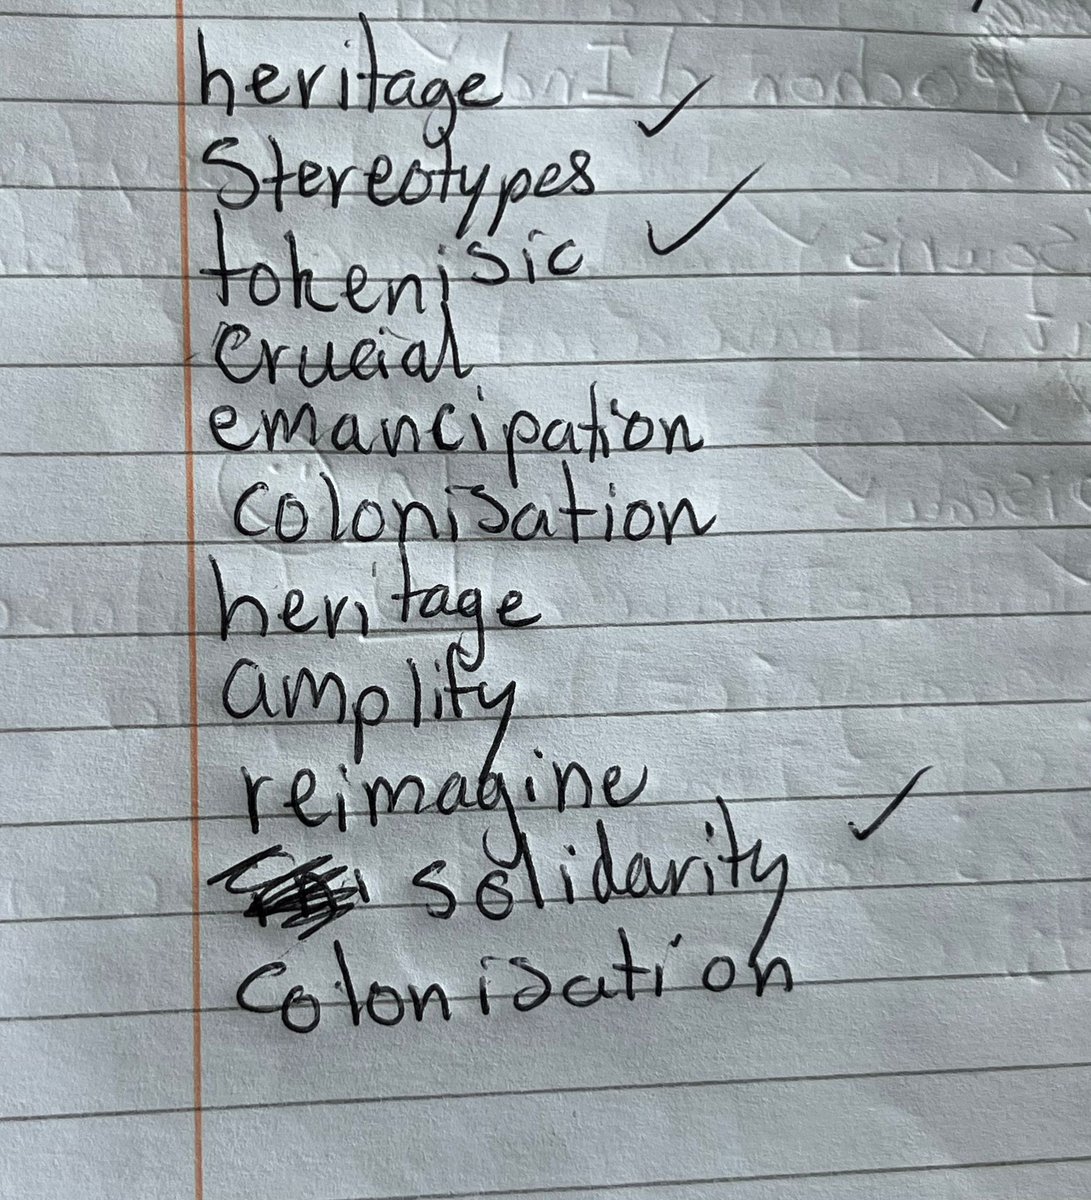 heritage
Stereotypes
tokenisic
crucial
emancipation
colonisation
heritage
amplify
reimagine
solidarity
colonisation